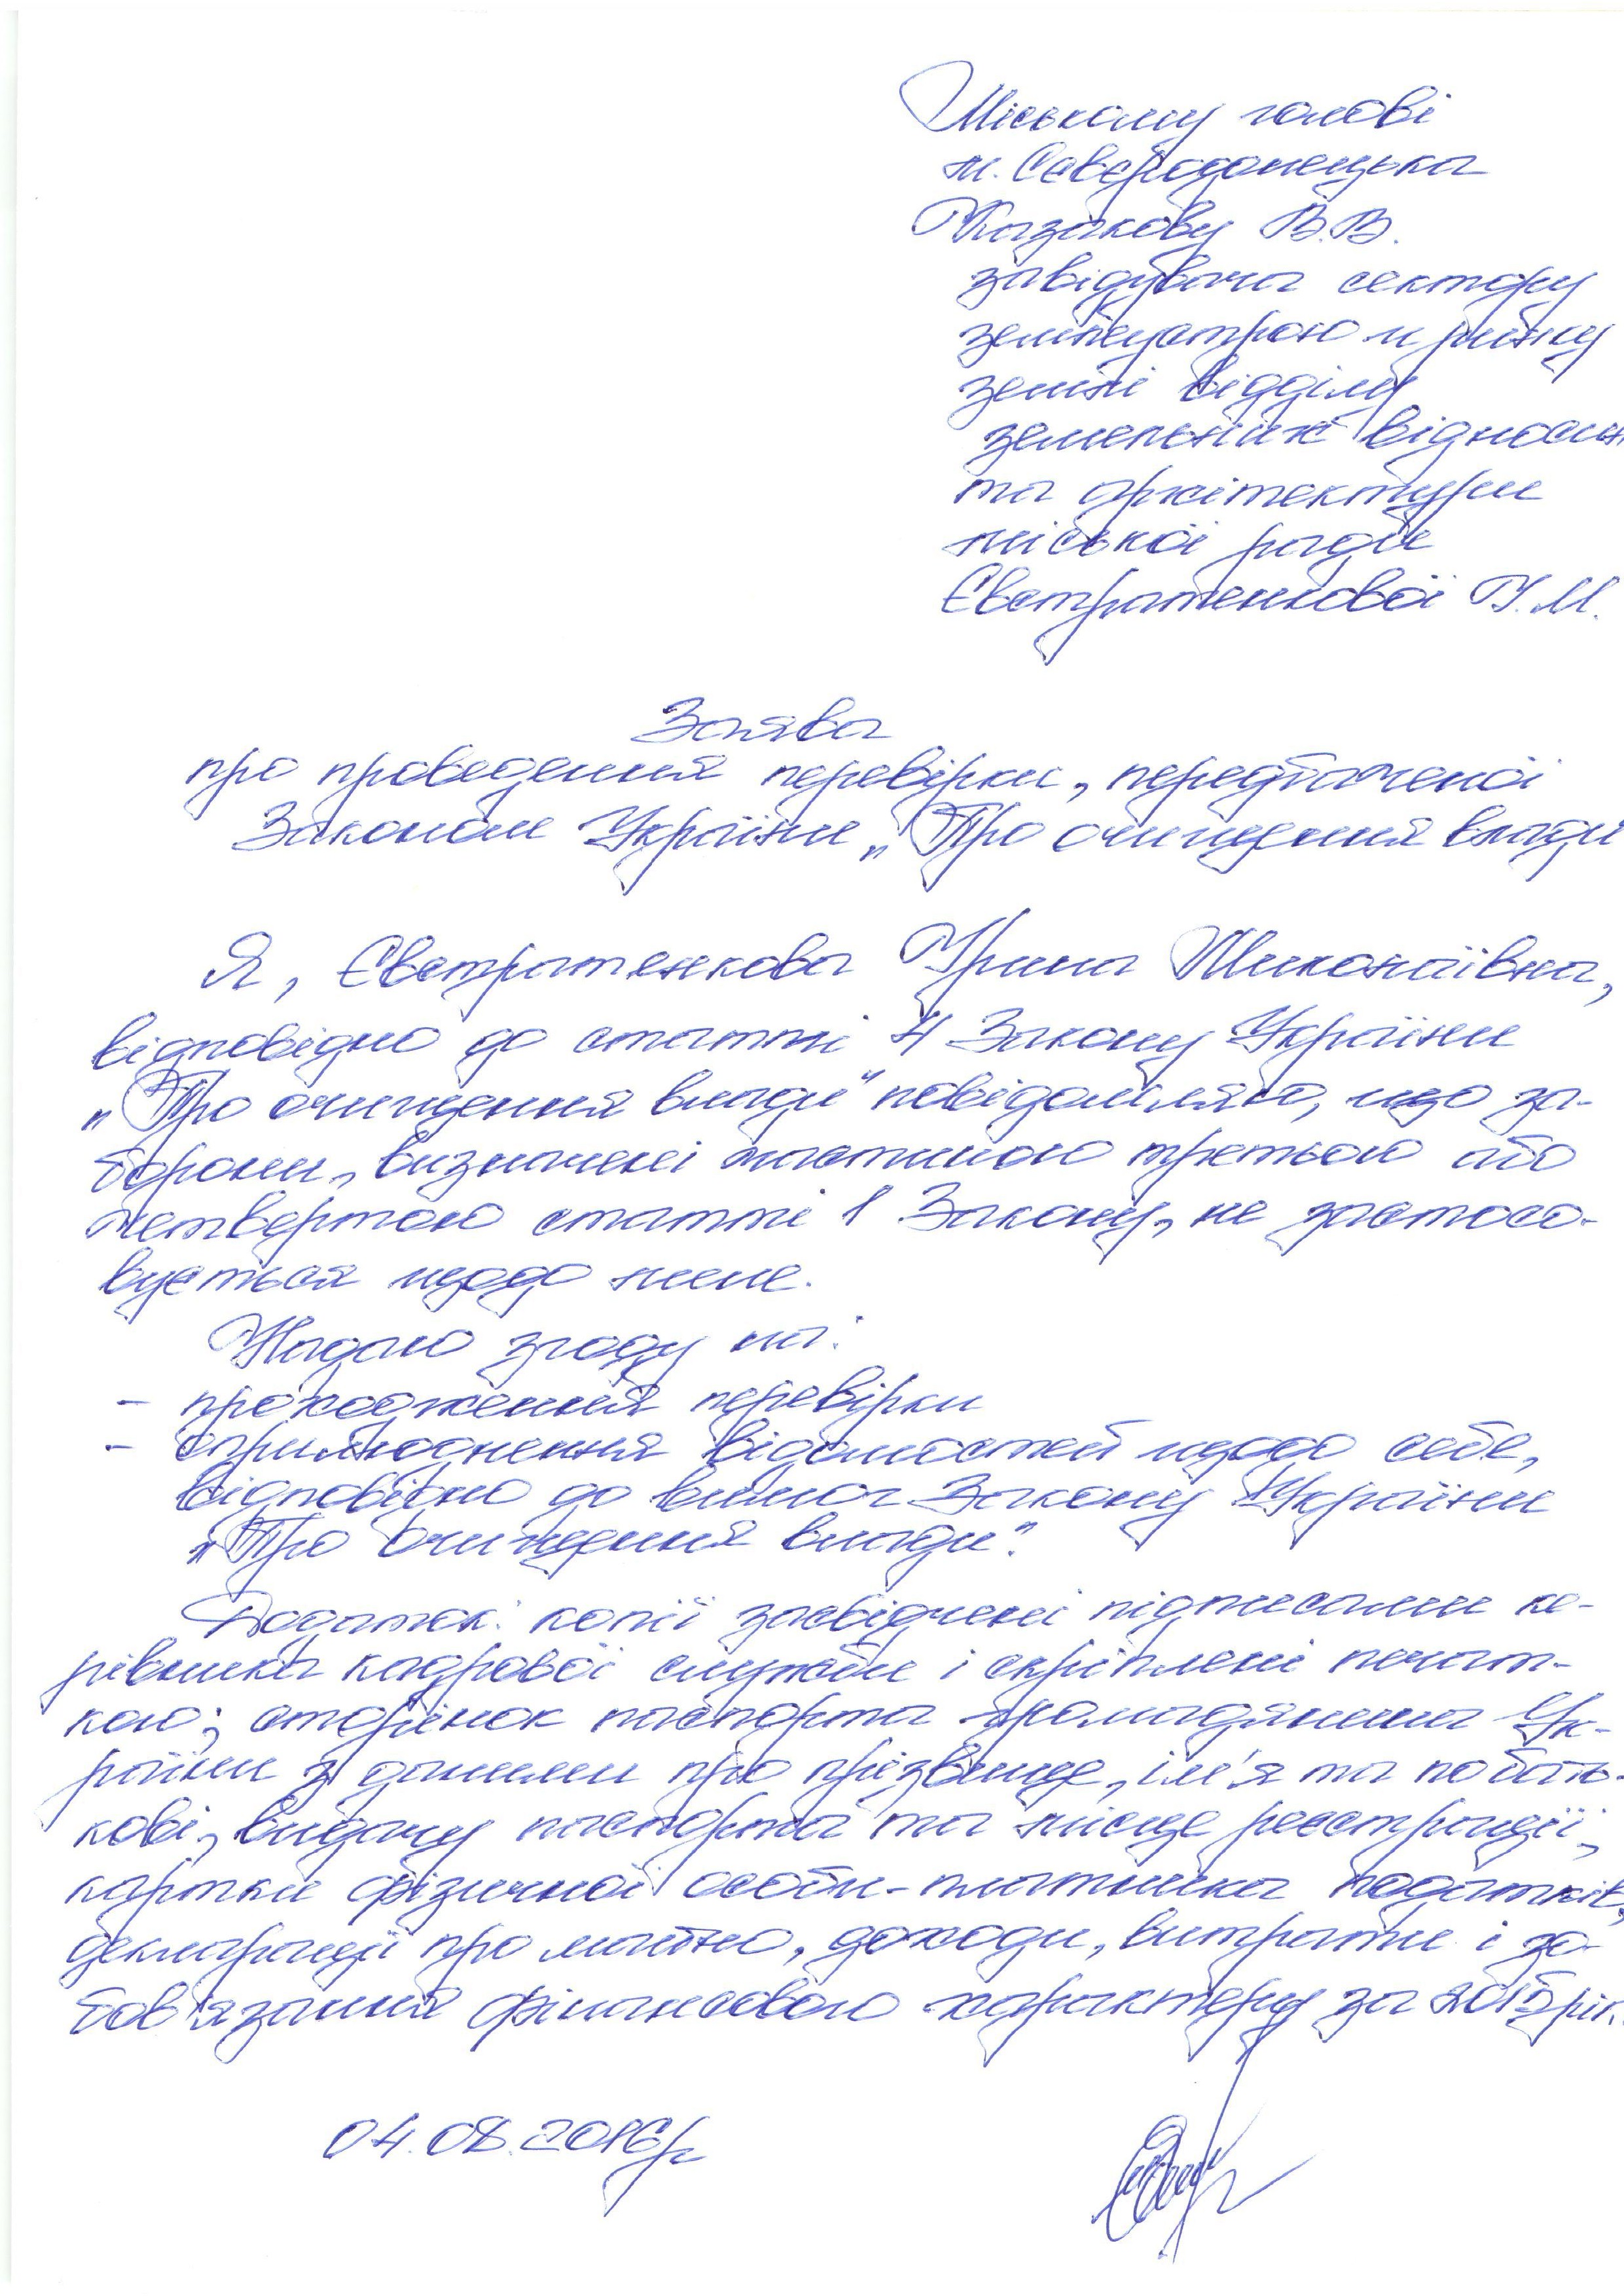 Міському голові
м. Сєвєродонецька
Казакову В.В.
завідувача сектору
землеустрою и ринку
землі відділу
земельних відносин
та архітектури
міської ради
Євстратенкової І.М.
Заява
про проведення перевірки, передбаченої
Законом України „Про очищення влади
Я, Євстратенкова Ірина Миколаївна,
відповідно до статті 4 Закону України
„Про очищення влади" повідомляю, що за-
борони, визначені частиною третьою або
четвертою статті 1 Закону, не застосо-
вується щодо мене.
Надаю згоду на:
- проходження перевірки
- оприлюднення відомостей щодо себе,
відповідно до вимог Закону України
„Про очищення влади".
Додаток: копії засвідчені підписами ке-
рівника кадрової служби і скріплені печат-
кою; сторінок паспорта громадянина Ук-
раїни з даними про прізвище, ім'я та по бать-
кові, видачу паспорта та місце реєстрації,
картки фізичної особи-платника податків,
декларації про майно, доходи, витрати і зо-
бов'язання фінансового характеру за 2015 рік.
04.08.2016р